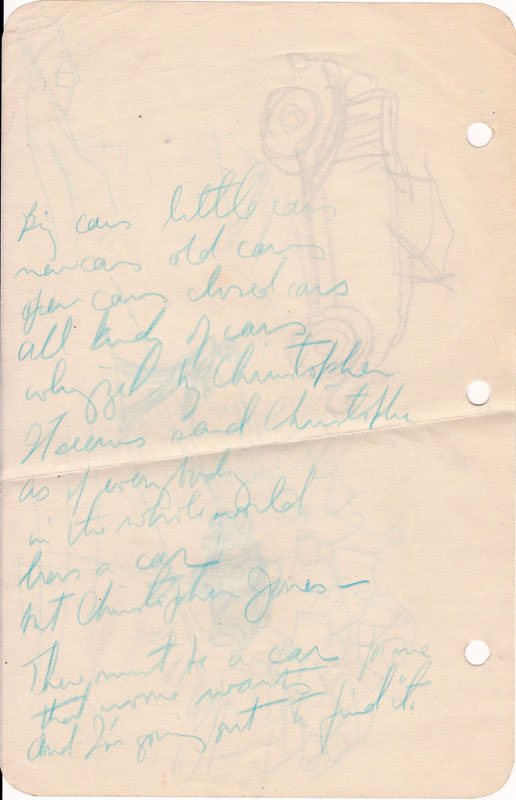 Big cars little cars
new cars old cars
open cars closed cars
all kinds of cars
whizzed by Christopher
It seems said Christopher
as if everybody
in the whole world
has a car
but Christopher Jones—
There must be a car for me
that no one wants
and I'm going out to find it.